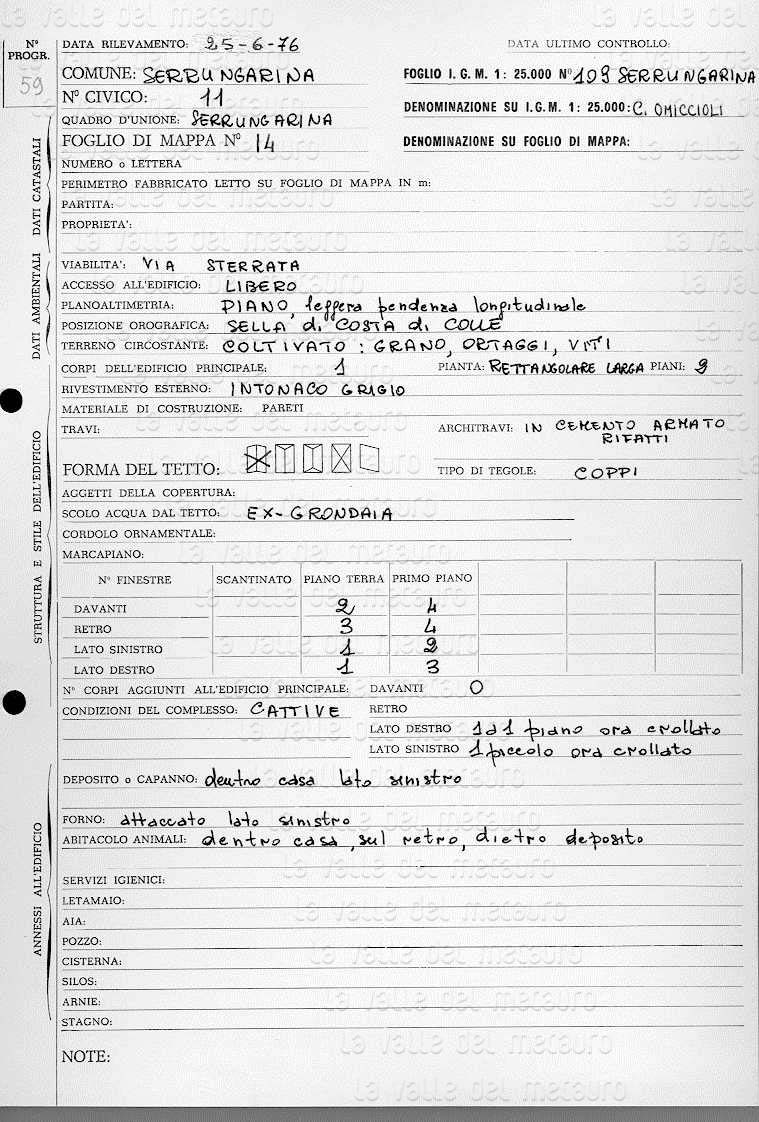 N° PROGR.
59
DATA RILEVAMENTO: 25-6-76
DATA ULTIMO CONTROLLO:
COMUNE: SERRUNGARINA
FOGLIO I.G.M. 1: 25.000 N° 109 SERRUNGARINA
N° CIVICO: 11
DENOMINAZIONE SU I.G.M. 1: 25.000: C. OMICCIOLI
QUADRO D'UNIONE: SERRUNGARINA
FOGLIO DI MAPPA N° 14
DENOMINAZIONE SU FOGLIO DI MAPPA:
DATI CATASTALI
NUMERO o LETTERA
PERIMETRO FABBRICATO LETTO SU FOGLIO DI MAPPA IN m:
PARTITA:
PROPRIETA':
DATI AMBIENTALI
VIABILITA': VIA STERRATA
ACCESSO ALL'EDIFICIO: LIBERO
PLANOALTIMETRIA: PIANO, leggera pendenza longitudinale
POSIZIONE OROGRAFICA: SELLA di COSTA di COLLE
TERRENO CIRCOSTANTE: COLTIVATO: GRANO, ORTAGGI, VITI
STRUTTURA E STILE DELL'EDIFICIO
CORPI DELL'EDIFICIO PRINCIPALE: 1 PIANTA: RETTANGOLARE LARGA PIANI: 2
RIVESTIMENTO ESTERNO: INTONACO GRIGIO
MATERIALE DI COSTRUZIONE: PARETI
TRAVI:
ARCHITRAVI: IN CEMENTO ARMATO
RIFATTI
FORMA DEL TETTO:
TIPO DI TEGOLE: COPPI
AGGETTI DELLA COPERTURA:
SCOLO ACQUA DAL TETTO: EX-GRONDAIA
CORDOLO ORNAMENTALE:
MARCAPIANO:
N° FINESTRE SCANTINATO PIANO TERRA PRIMO PIANO
DAVANTI 2 4
RETRO 3 4
LATO SINISTRO 1 2
LATO DESTRO 1 3
N° CORPI AGGIUNTI ALL'EDIFICIO PRINCIPALE: DAVANTI 0
CONDIZIONI DEL COMPLESSO: CATTIVE
RETRO
LATO DESTRO 1 a 1 piano ora crollato
LATO SINISTRO 1 piccolo ora crollato
ANNESSI ALL'EDIFICIO
DEPOSITO o CAPANNO: dentro casa lato sinistro
FORNO: attaccato lato sinistro
ABITACOLO ANIMALI: dentro casa, sul retro, dietro deposito
SERVIZI IGIENICI:
LETAMAIO:
AIA:
POZZO:
CISTERNA:
SILOS:
ARNIE:
STAGNO:
NOTE:
la valle del metauro